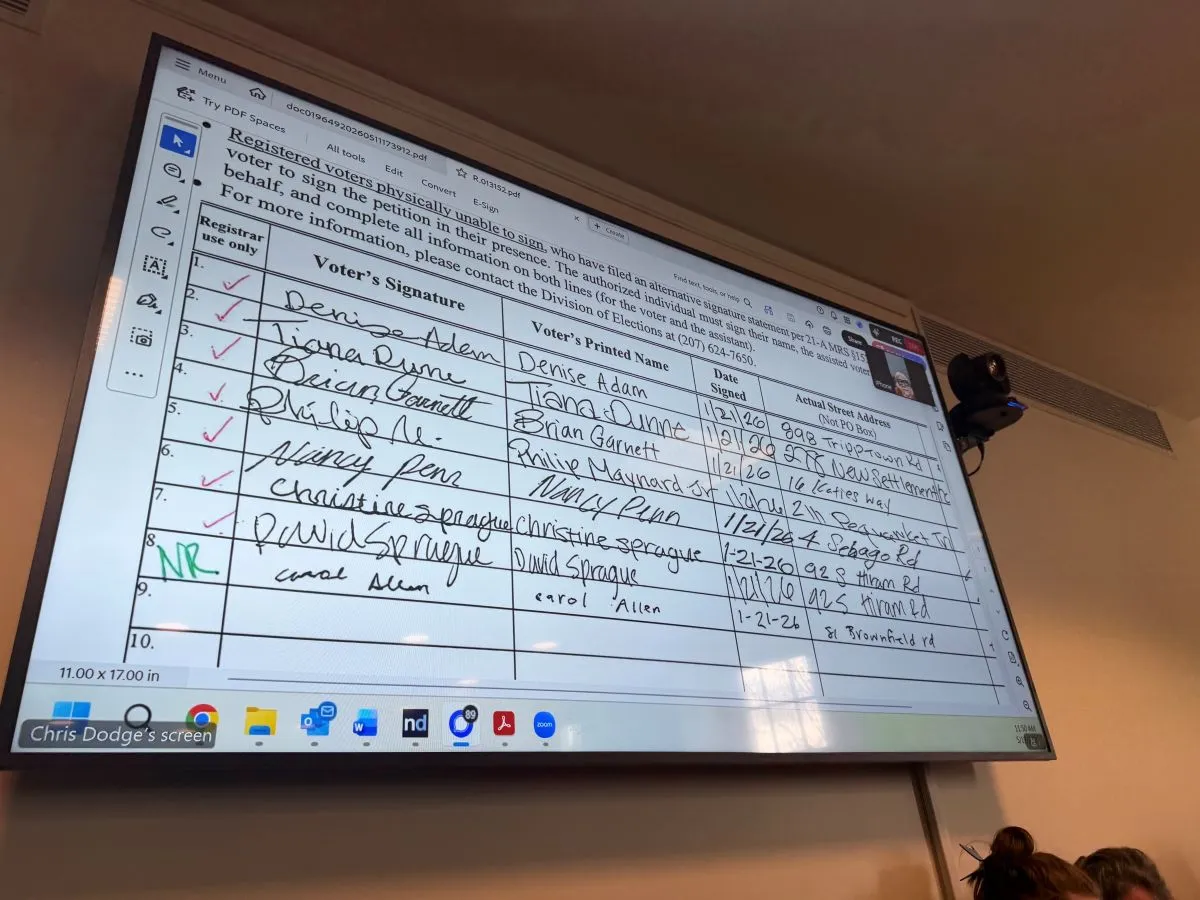 Menu
doc01964920260511173912.pdf
R.013152.pdf
+ Create
Try PDF Spaces
All tools
Edit
Convert
E-Sign
Find text, tools, or help
Share
REC
iPhone
Registered voters physically unable to sign, who have filed an alternative signature statement per 21-A MRS §15
voter to sign the petition in their presence. The authorized individual must sign their name, the assisted voter
behalf, and complete all information on both lines (for the voter and the assistant).
For more information, please contact the Division of Elections at (207) 624-7650.
Registrar use only
Voter's Signature
Voter's Printed Name
Date Signed
Actual Street Address (Not PO Box)
1. Denise Adam Denise Adam 1/21/26 898 Tripptown Rd
2. Tiana Dunne Tiana Dunne 1/21/26 New Settlement
3. Brian Garnett Brian Garnett 1/21/26 16 Katies way
4. Philip M. Philip Maynard Jr 1/21/26
5. Nancy Penn Nancy Penn 1/21/26 4 Sebago Rd
6. Christine sprague Christine sprague 1-21-26 92 S Hiram Rd
7. David Sprague David Sprague 1/21/26 92 S Hiram Rd
8. NR Carol Allen Carol Allen 1-21-26 81 Brownfield rd
9.
10.
11.00 x 17.00 in
nd
89
zoom
11:50 AM
Chris Dodge's screen